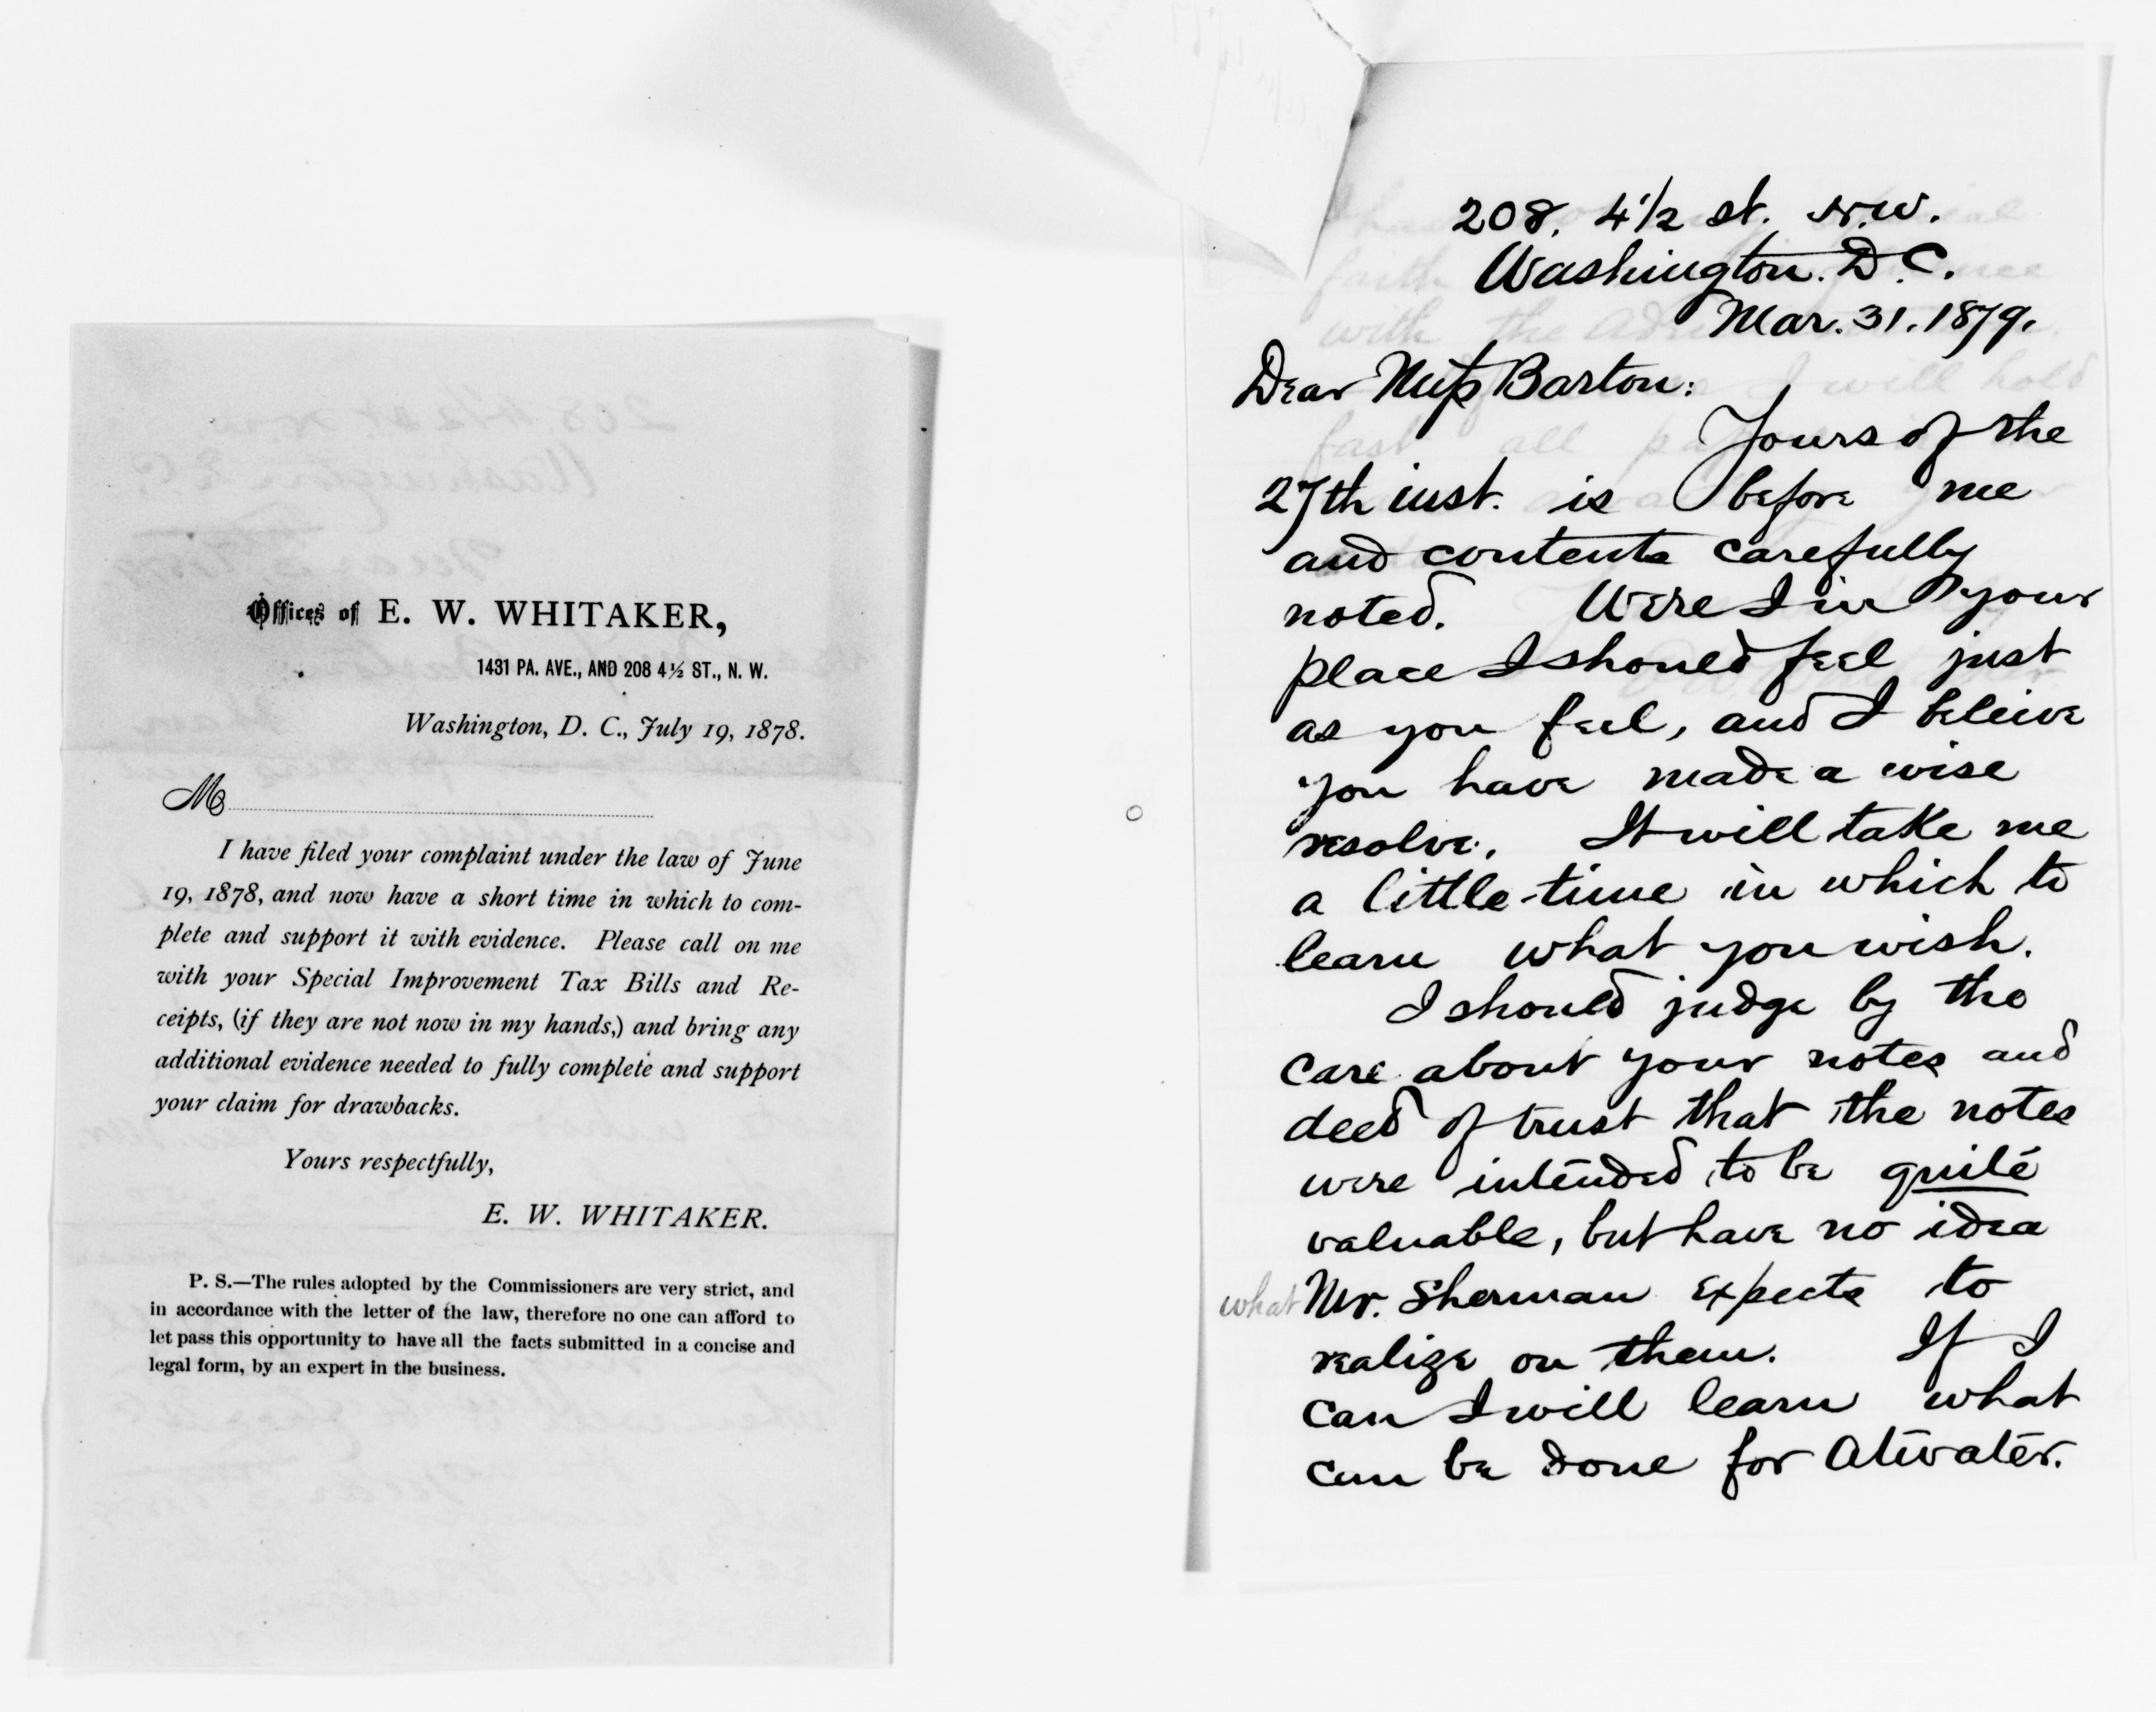 Offices of E. W. WHITAKER,
1431 PA. AVE., AND 208 4½ ST., N. W.
Washington, D. C., July 19, 1878.
M
I have filed your complaint under the law of June
19, 1878, and now have a short time in which to com-
plete and support it with evidence. Please call on me
with your Special Improvement Tax Bills and Re-
ceipts, (if they are not now in my hands,) and bring any
additional evidence needed to fully complete and support
your claim for drawbacks.
Yours respectfully,
E. W. WHITAKER.
P. S.—The rules adopted by the Commissioners are very strict, and
in accordance with the letter of the law, therefore no one can afford to
let pass this opportunity to have all the facts submitted in a concise and
legal form, by an expert in the business.
208. 4½ st. N.W.
Washington. D.C.
Mar. 31. 1879.
Dear Miss Barton:
Yours of the
27th inst. is before me
and contents carefully
noted. Were I in your
place I should feel just
as you feel, and I beleive
you have made a wise
resolve. It will take me
a little time in which to
learn what you wish.
I should judge by the
care about your notes and
deed of trust that the notes
were intended to be quite
valuable, but have no idea
what Mr. Sherman expects to
realize on them. If I
can I will learn what
can be done for Atwater.